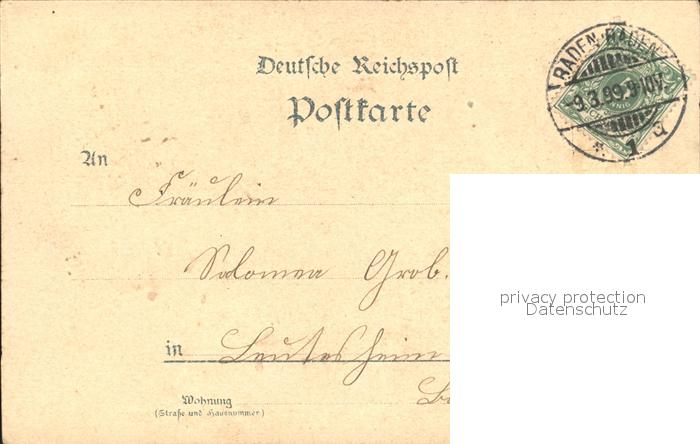 Deutsche Reichspost
Postkarte
BADEN-BADEN
9.3.99.9-10V.
* 1 q
An
Fräulein
Salomea Grob.
in Leutesheim
Wohnung
(Straße und Hausnummer)
privacy protection
Datenschutz